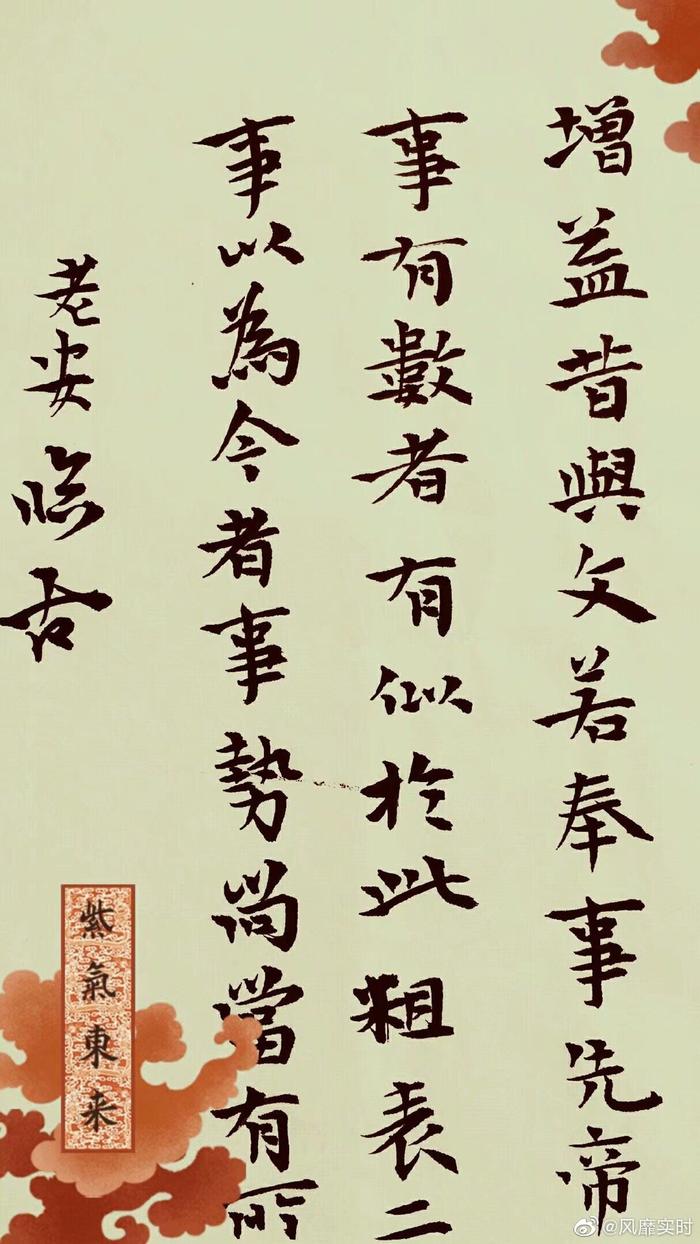 增益昔與文若奉事先帝
事有數者有似於此粗表二
事以為今者事勢尚當有所
老安臨古
紫氣東来
@风靡实时